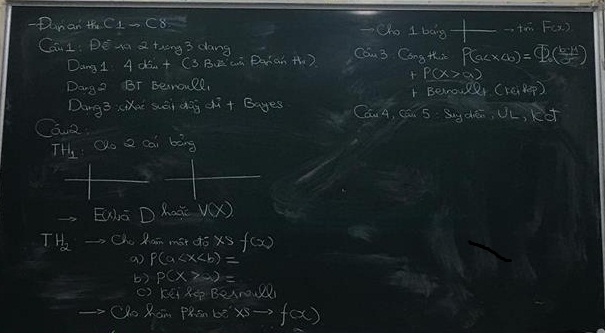 Câu 1: Đề ra 2 trong 3 dạng
Dạng 1: 4 dấu +
Dạng 2 BT Bernoulli
Dạng 3: Xác suất đầy đủ + Bayes
Câu 2:
TH1: Cho 2 cái bảng
→ E(X) và D hoặc V(X)
TH2: → Cho hàm mật độ XS f(x)
a) P(a<X<b) =
b) P(X>a) =
c) kết hợp Bernoulli
→ Cho hàm phân bố XS → f(x)
→ Cho 1 bảng → tìm F(x).
Câu 3: Công thức P(a<X<b) =
+ P(X>a)
+ Bernoulli (kết hợp)
Câu 4, Câu 5: Suy diễn, ƯL, KĐ